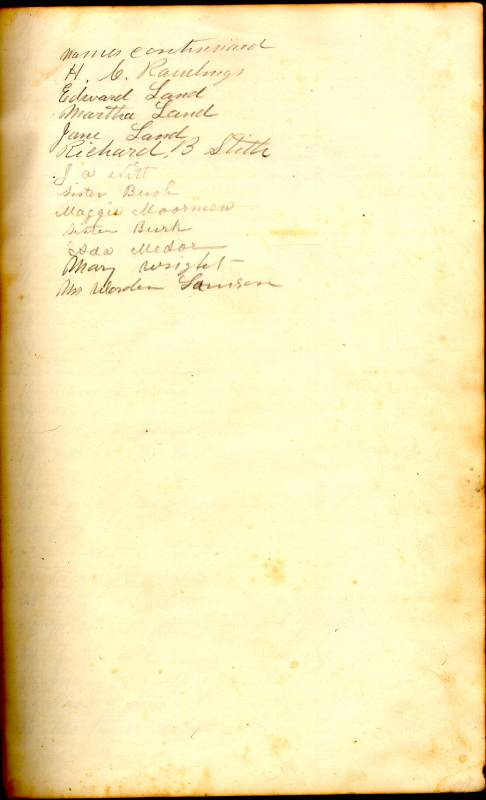 names continued
H. C. Rawlings
Edward Land
Martha Land
Jane Land
Richard, B Stith
J a Witt
sister Bush
Maggie Moormen
sister Burk
Medor
Mary wright
Worden